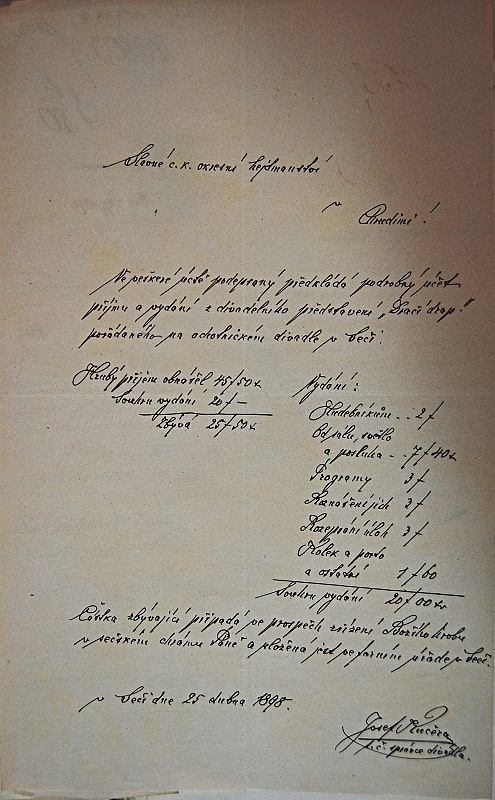 Slavné c. k. okresní hejtmanství
v
Chrudimi!
Ve veškeré úctě podepsaný předkládá podrobný účet
příjmu a vydání z divadelního představení „Dračí drap“
pořádaného na ochotnickém divadle v Seči.
Hrubý příjem obnášel 45 f 50 x
Souhrn vydání 20 f —
Zbývá 25 f 50 x
Vydání:
Hudebníkům . . 2 f
Od sálu, světlo
a posluha - . 7 f 40 x
Programy 3 f
Roznášení jich 3 f
Rozepsání úloh 3 f
Kolek a porto
a ostatní 1 f 60
Souhrn vydání 20 f 00 x
Částka zbývající připadá ve prospěch zřízení Božího hrobu
v sečském chrámu Páně a uložena jest ve farním úřadě v Seči.
v Seči dne 25 dubna 1898.
Josef Kučera
t. č. správce divadla.